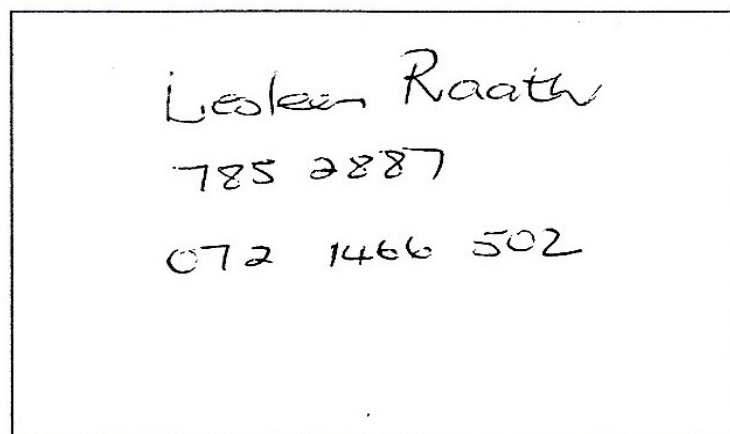 Lesleen Raath
785 2887
072 1466 502